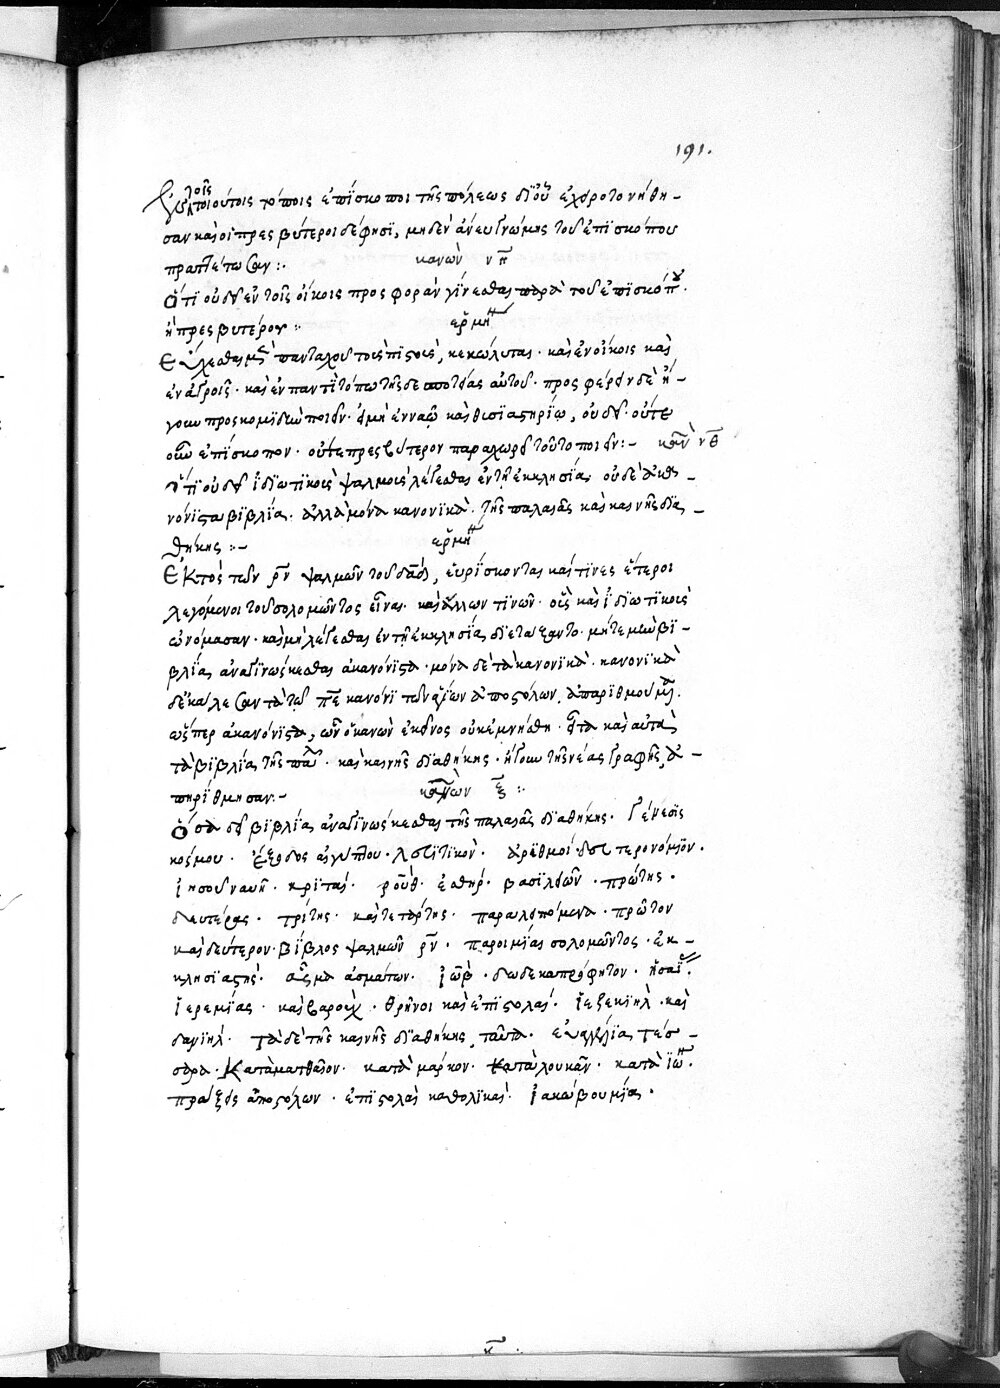 191.
ἐν τοῖς τοιούτοις τόποις ἐπίσκοποι τῆς πόλεως δι' οὗ ἐχειροτονήθη-
σαν καὶ οἱ πρεσβύτεροι δέ φησι, μηδὲν ἄνευ γνώμης τοῦ ἐπισκόπου
πραττέτωσαν :·
κανὼν νη
Ὅτι οὐ δεῖ ἐν τοῖς οἴκοις προσφορὰν γίνεσθαι παρὰ τοῦ ἐπισκόπου.
ἢ πρεσβυτέρου :·
ἑρμη
πανταχοῦ τοῖς πιστοῖς, κεκώλυται· καὶ ἐν οἴκοις καὶ
ἐν ἀγροῖς· καὶ ἐν παντὶ τόπω τῆς δεσποτείας αὐτοῦ· προσφέρειν δὲ ἤ-
γουν προσκομιδὴν ποιεῖν· εἰ μὴ ἐν ναῶ καὶ θυσιαστηρίω, οὐ δεῖ· οὔτε
οὖν ἐπίσκοπον· οὔτε πρεσβύτερον παραχωρεῖ τοῦτο ποιεῖν :- καν νθ
Ὅτι οὐ δεῖ ἰδιωτικοὺς ψαλμοὺς λέγεσθαι ἐν τῆ ἐκκλησία, οὐδὲ ἀκα-
νόνιστα βιβλία. ἀλλὰ μόνα κανονικὰ· τῆς παλαιᾶς καὶ καινῆς δια-
θήκης :-
ἑρμη
Ἐκτὸς τῶν ρν ψαλμῶν τοῦ δαδ, εὑρίσκονται καί τινες ἕτεροι
λεγόμενοι τοῦ σολομῶντος εἶναι· καὶ ἄλλων τινῶν· οὓς καὶ ἰδιωτικοὺς
ὠνόμασαν· καὶ μὴ λέγεσθαι ἐν τῆ ἐκκλησία διετάξαντο· μήτε μὴν βι-
βλία ἀναγινώσκεσθαι ἀκανόνιστα· μόνα δὲ τὰ κανονικὰ· κανονικὰ
δὲ καλεῖ ταῦτα τῶ πε κανόνι τῶν ἁγίων ἀποστόλων ἀπαριθμούμενα.
ὥσπερ ἀκανόνιστα, ὧν ὁ κανὼν ἐκεῖνος οὐκ ἐμνήσθη· εἶτα καὶ αὐτὰ
τὰ βιβλία τῆς παλ· καὶ καινῆς διαθήκης· ἤγουν τῆς νέας γραφῆς ἀ-
πηρίθμησαν :-
κανὼν ξ :·
Ὅσα δεῖ βιβλία ἀναγινώσκεσθαι τῆς παλαιᾶς διαθήκης· Γένεσις
κόσμου· ἔξοδος αἰγύπτου· λευιτικὸν· ἀριθμοί· δευτερονόμιον·
ἰησοῦ ναυῆ· κριταί· ῥοὺθ· ἐσθήρ· βασιλειῶν· πρώτης·
δευτέρας· τρίτης· καὶ τετάρτης· παραλειπόμενα· πρῶτον
καὶ δεύτερον· βίβλος ψαλμῶν ρν· παροιμίαι σολομῶντος· ἐκ-
κλησιαστής· ἆσμα ἀσμάτων· ἰὼβ· δωδεκαπρόφητον· ἡσαΐ·
ἱερεμίας· καὶ βαροὺχ· θρῆνοι καὶ ἐπιστολαί· ἰεζεκιὴλ· καὶ
δανιήλ· τὰ δὲ τῆς καινῆς διαθήκης ταῦτα· εὐαγγέλια τέσ-
σαρα· κατὰ ματθαῖον· κατὰ μάρκον· κατὰ λουκᾶν· κατὰ ἰω·
πράξεις ἀποστόλων· ἐπιστολαὶ καθολικαί· ἰακώβου μία·